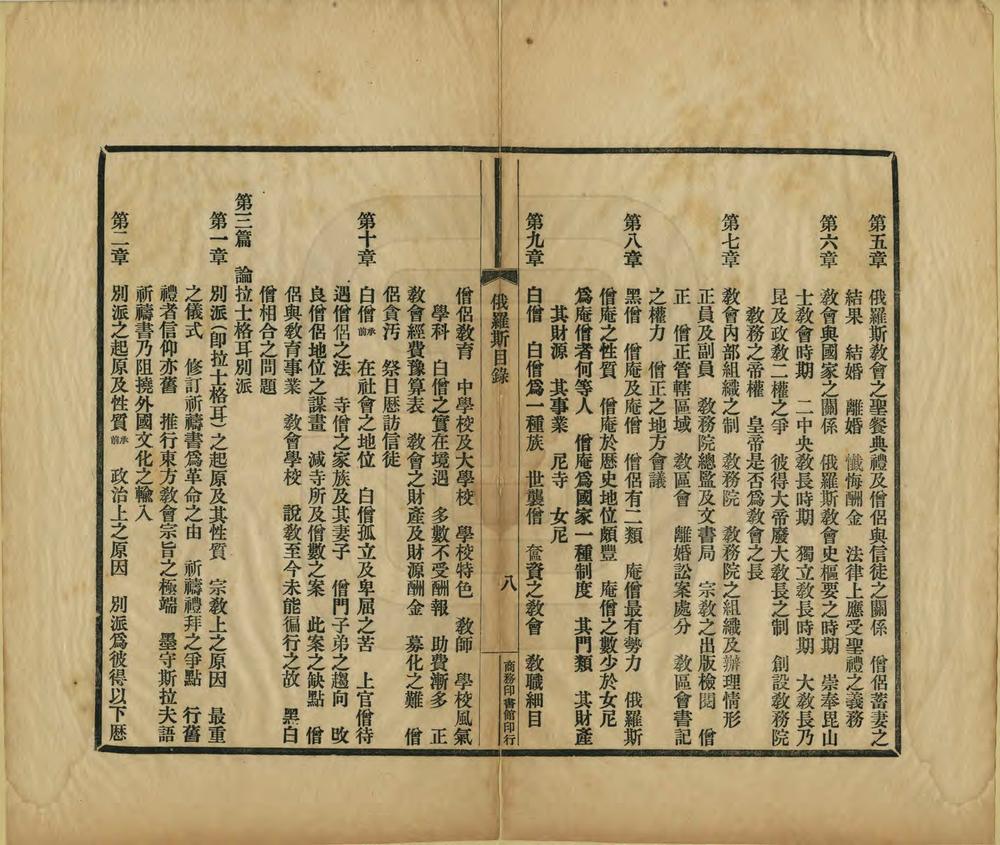 第五章　俄羅斯敎會之聖餐典禮及僧侶與信徒之關係　僧侶蓄妻之
結果　結婚　離婚　懺悔酬金　法律上應受聖禮之義務
第六章　敎會與國家之關係　俄羅斯敎會史樞要之時期　崇奉毘山
士敎會時期　二中央敎長時期　獨立敎長時期　大敎長乃
昆及政敎二權之爭　彼得大帝廢大敎長之制　創設敎務院
敎務之帝權　皇帝是否爲敎會之長
第七章　敎會內部組織之制　敎務院　敎務院之組織及辦理情形
正員及副員　敎務院總監及文書局　宗敎之出版檢閱　僧
正　僧正管轄區域　敎區會　離婚訟案處分　敎區會書記
之權力　僧正之地方會議
第八章　黑僧　僧庵及庵僧　僧侶有二類　庵僧最有勢力　俄羅斯
僧庵之性質　僧庵於歷史地位頗豐　庵僧之數少於女尼
爲庵僧者何等人　僧庵爲國家一種制度　其門類　其財產
其財源　其事業　尼寺　女尼
第九章　白僧　白僧爲一種族　世襲僧　奩資之敎會　敎職細目
俄羅斯目錄
八
商務印書館印行
僧侶敎育　中學校及大學校　學校特色　敎師　學校風氣
學科　白僧之實在境遇　多數不受酬報　助費漸多　正
敎會經費豫算表　敎會之財產及財源酬金　募化之難　僧
侶貪汚　祭日歷訪信徒
第十章　白僧前承　在社會之地位　白僧孤立及卑屈之苦　上官僧待
遇僧侶之法　寺僧之家族及其妻子　僧門子弟之趨向　改
良僧侶地位之謀畫　減寺所及僧數之案　此案之缺點　僧
侶與敎育事業　敎會學校　說敎至今未能徧行之故　黑白
僧相合之問題
第三篇　論拉士格耳別派
第一章　別派（卽拉士格耳）之起原及其性質　宗敎上之原因　最重
之儀式　修訂祈禱書爲革命之由　祈禱禮拜之爭點　行舊
禮者信仰亦舊　推行東方敎會宗旨之極端　墨守斯拉夫語
祈禱書乃阻撓外國文化之輸入
第二章　別派之起原及性質前承　政治上之原因　別派爲彼得以下歷